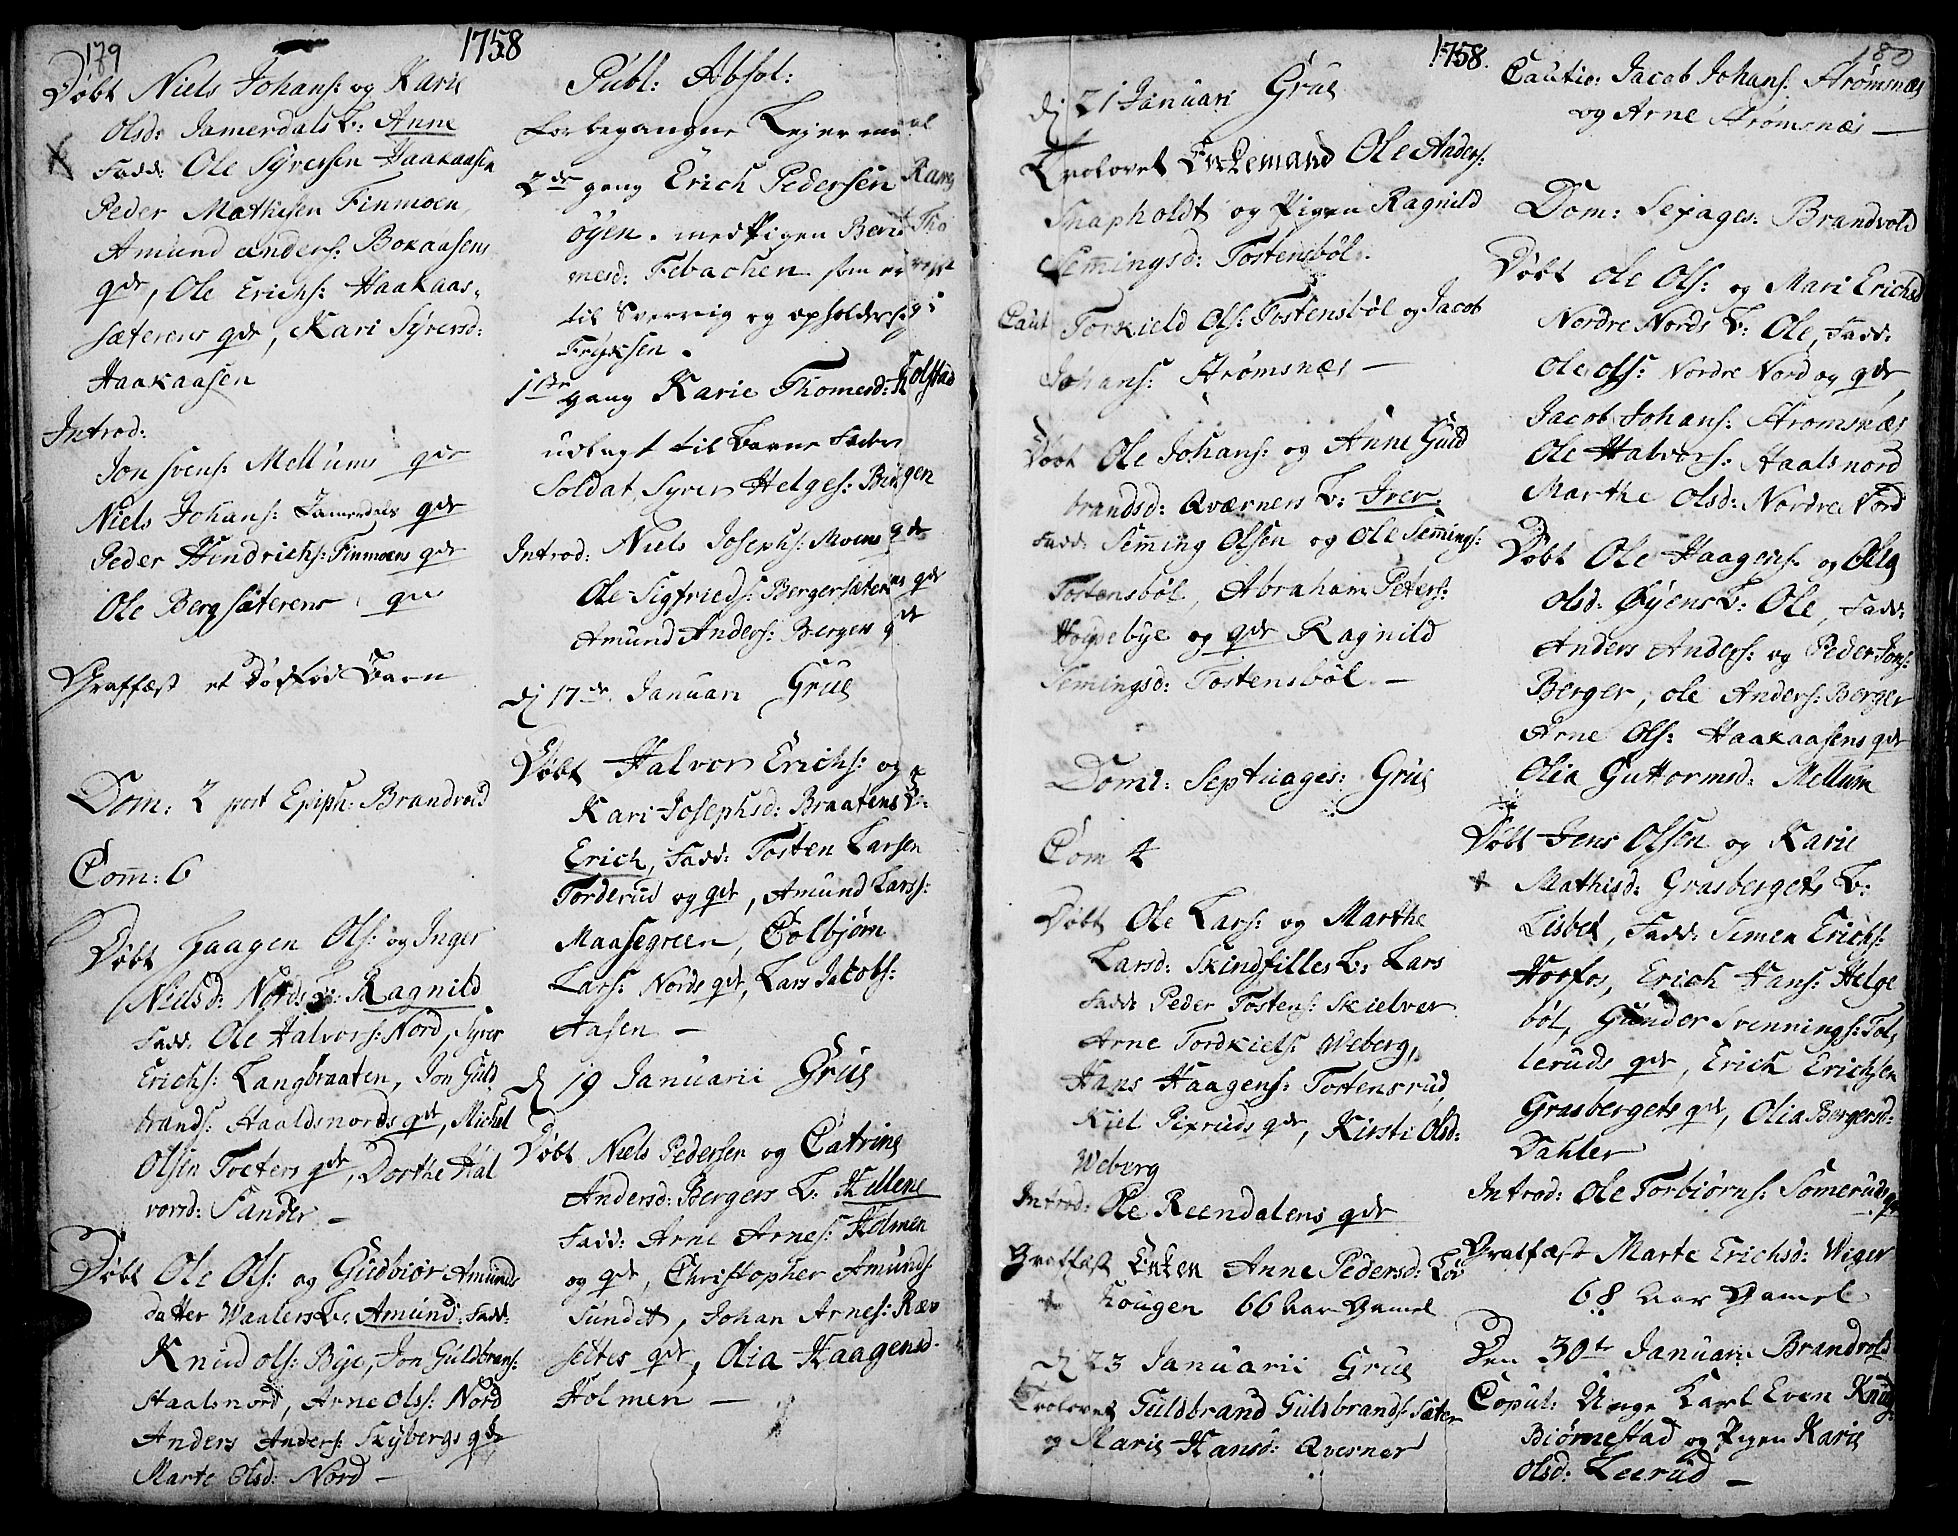 179
1758
Døbt Niels Johans: og Karie
Olsd: Jamerdals B: Anne
Fadd: Ole Syversen Haakaasen
Peder Mathisen Finmoen,
Amund Anders: Bokaasens
qdr, Ole Erichs: Haakaas-
sæterens qdr, Kari Syversd:
Haakaasen
Introd:
Jon Svens: Mellums qdr
Niels Johans: Jamerdals qdr
Peder Hendrichs: Finmoens qdr
Ole Bergsæterens qdr
Graffæst et Dødfød Barn
Dom: 2 post Epiph: Brandvold
Com: 6
Døbt Haagen Ols: og Inger
Nielsd: Nords B: Ragnild
Fadd: Ole Halvors: Nord, Syver
Erichs: Langbraaten, Jon Guld
brands: Haaldsnords qdr, Michel
Olsen Tveters qdr, Dorthe Hal
vorsd: Sander –
Døbt Ole Ols: og Gudbiør Amunds
datter Waalers B: Amund: Fadd:
Knud Ols: Bye, Jon Guldbrans:
Haalsnord, Arne Ols: Nord
Anders Anders: Skybergs qdr
Marte Olsd: Nord –
Publ: Absol:
for begangne Lejermaal
2de gang Erich Pedersen Rang
øyen. med Pigen Berit Tho
mesd: Febachen som er rejst
til Sverrig og opholder sig i
Fryksen.
1ste gang Karie Thomesd: Kolstad
udlagt til Barne Fader
Soldat Syver Helges: Bingen
Introd: Niels Josephs: Moens qdr
Ole Sigfrieds: Bergersæterens qdr
Amund Anders: Bergers qdr
dj 17de Januari Grue
Døbt Halvor Erichs: og
Kari Josephsd: Braatens B:
Erich, Fadd: Tosten Larsen
Torderud og qdr, Amund Lars:
Maasegreen, Colbjørn
Lars: Nords qdr, Lars Jacobs:
Aasen –
dj 19 Januarii Grue
Døbt Niels Pedersen og Catrine
Andersd: Bergers B: Hellene
Fadd: Arne Arnes: Holmen
og qdr, Christopher Amunds:
Sundet, Johan Arnes: Ræv
settes qdr, Olia Haagensd.
Holmen –
1758.
180
dj 21 Januari Grue
Trolovet Enkemand Ole Anders:
Snapholdt og Pigen Ragnild
Semingsd: Tostensbøl.
Caut Torkield Ols: Tostensbøl og Jacob
Johans: Strømsnæs –
Døbt Ole Johans: og Anne Guld
brandsd: Qværners B: Iver
Fadd: Semming Olsen og Ole Semings:
Tostensbøl, Abraham Peters:
Houpebye og qdr Ragnild
Semingsd: Tostensbøl –
Dom: Septuages: Grue
Com 4
Døbt Ole Lars: og Marthe
Larsd: Skindfilles B: Lars
Fadd: Peder Tostens: Skielver
Arne Tordkiels: Weberg,
Hans Haagens: Tostensrud,
Kiel Pipruds qdr, Kirsti Olsd:
Weberg
Introd: Ole Reendalens qdr
Graffæst Enken Anne Pedersd: Løv
hougen 66 Aar Gamel
dj 23 Januarii Grue
Trolovet Guldbrand Guldbrands: Sæter
og Marie Hansd: Qverner
Cautio: Jacob Johans: Strømsnæs
og Arne Strømsnæs –
Dom: Sexages: Brandvold
Døbt Ole Ols: og Mari Erichsd
Nordre Nords B: Ole, Fadd:
Ole Ols: Nordre Nord og qdr,
Jacob Johans: Strømsnæs
Ole Halvors: Haalsnord
Marthe Olsd: Nordre Nord
Døbt Ole Haagens: og Olia
Olsd: Øyens B: Ole, Fadd:
Anders Anders: og Peder Jons:
Berger, Ole Anders: Berger
Arne Ols: Haakaasens qdr
Olia Guttormsd: Mellum
Døbt Jens Olsen og Karie
Mathisd: Grasbergets B:
Lisbet, Fadd: Simen Erichs:
Hoffos, Erich Hans: Helge
bøl, Gunder Svennings: Tol-
leruds qdr, Erich Erichsen
Grasbergets qdr, Olia Bergersd:
Dahler
Introd: Ole Torbiørns: Someruds qdr
Graffæst Marte Erichsd: Wiger
68 Aar Gamel
Den 30te Januari Brandvold
Copul: Unge Karl Even Knuds:
Biørnestad og Pigen Karie
Olsd: Leerud –